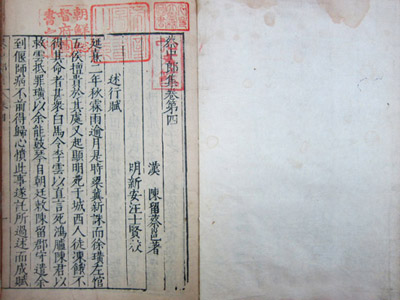 蔡中郎集卷第四
漢 陳留蔡邕著
明新安汪士賢校
述行賦
延熹二年秋霖雨逾月是時梁冀新誅而徐璜左悺
五侯擅貴於其處又起顯明苑于城西人徒凍餓不
得其命者甚衆白馬令李雲以直言死鴻臚陳君以
救雲抵罪璜以余能鼓琴自朝廷敕陳留郡守遣余
到偃師病不前得歸心憤此事遂託所過述而成賦
朝鮮總
督府圖
書之印